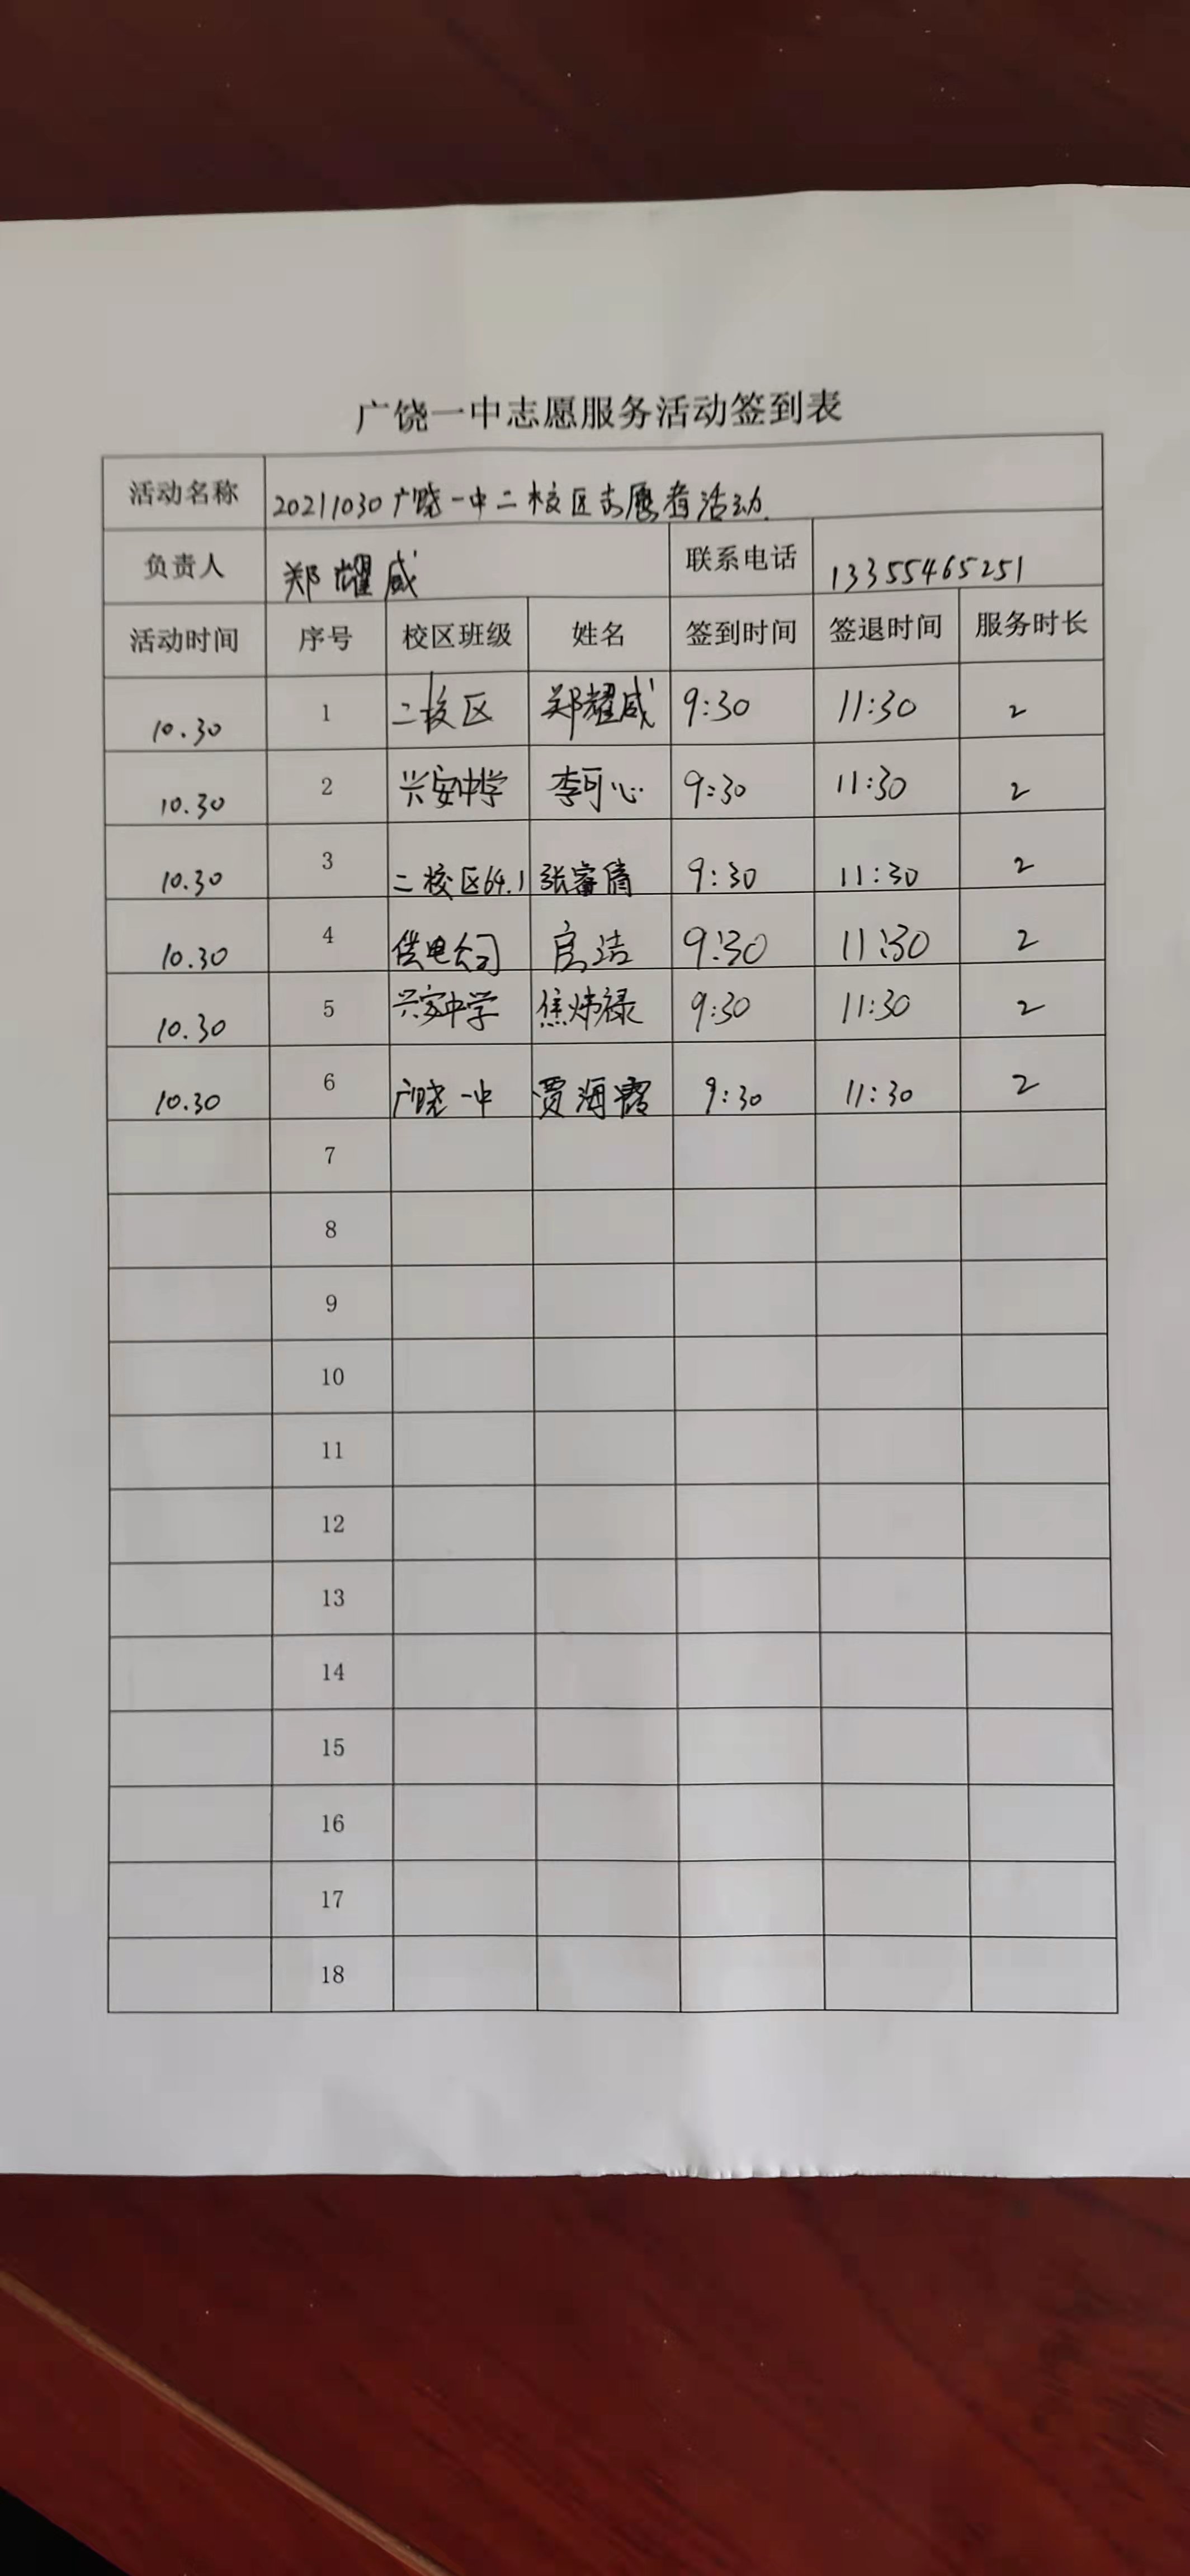 广饶一中志愿服务活动签到表
活动名称 20211030广饶一中二校区志愿者活动.
负责人 郑耀威 联系电话 13355465251
活动时间 序号 校区班级 姓名 签到时间 签退时间 服务时长
10.30 1 二校区 郑耀威 9:30 11:30 2
10.30 2 兴安中学 李可心 9:30 11:30 2
10.30 3 二校区64.1 张睿倩 9:30 11:30 2
10.30 4 供电公司 洁 9:30 11:30 2
10.30 5 兴安中学 焦炜禄 9:30 11:30 2
10.30 6 广饶一中 贾海霞 9:30 11:30 2
7
8
9
10
11
12
13
14
15
16
17
18